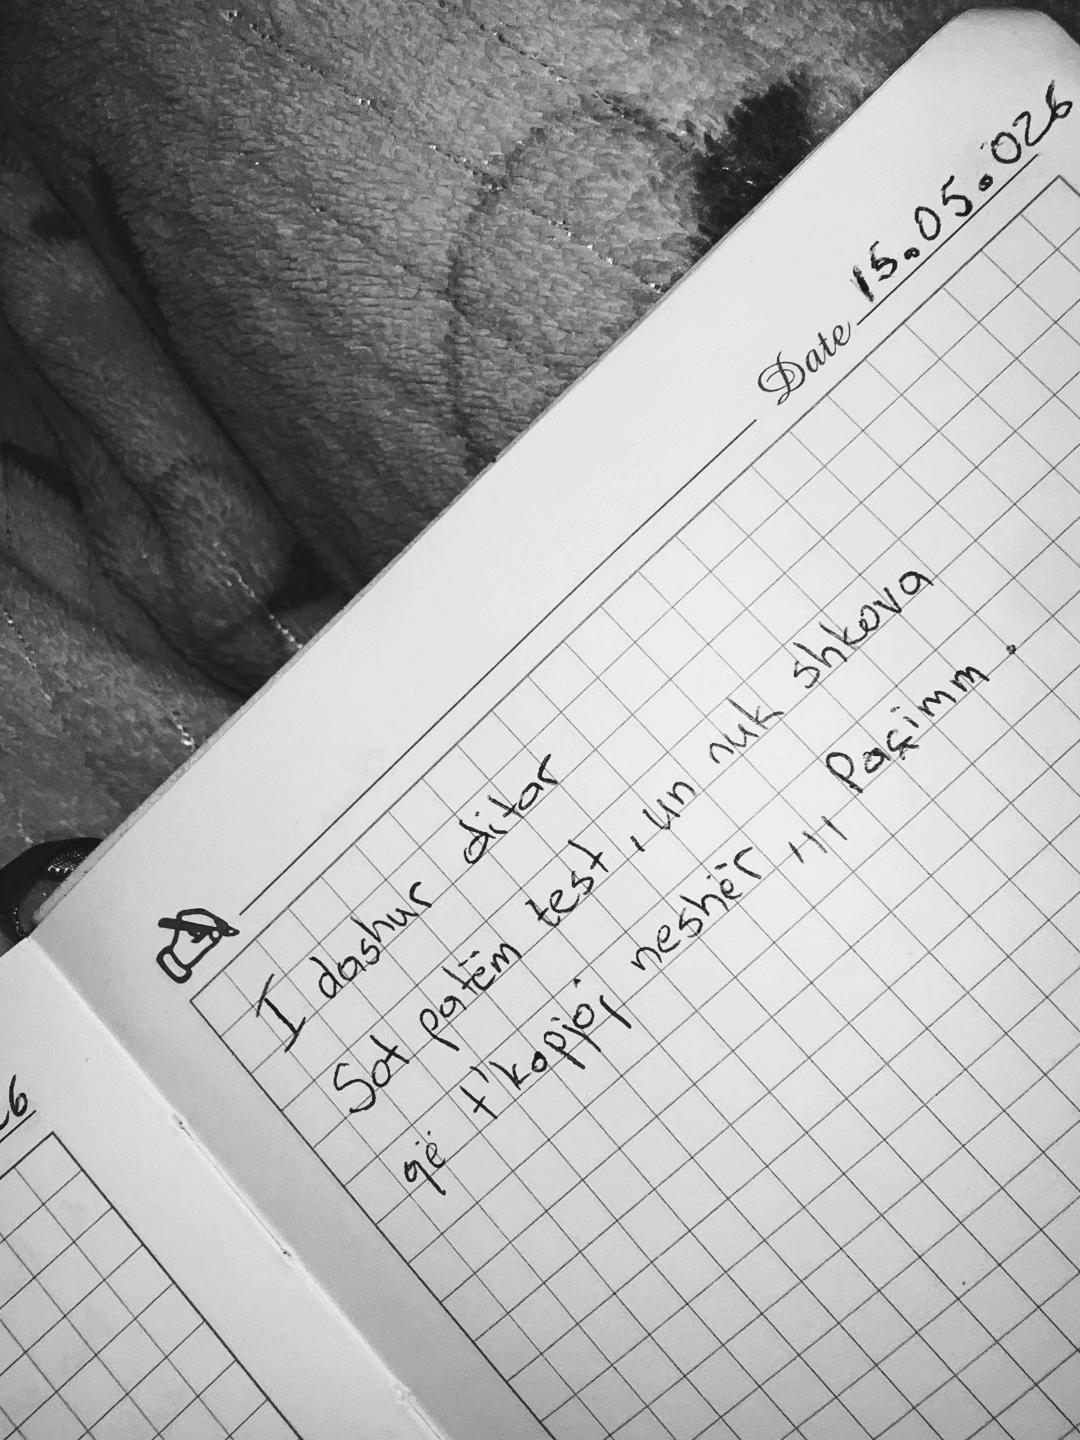 Date 15.05.026
I dashur ditar
Sot patëm test, un nuk shkova
që t'kopjoj neshër ,,, Paçimm.
26